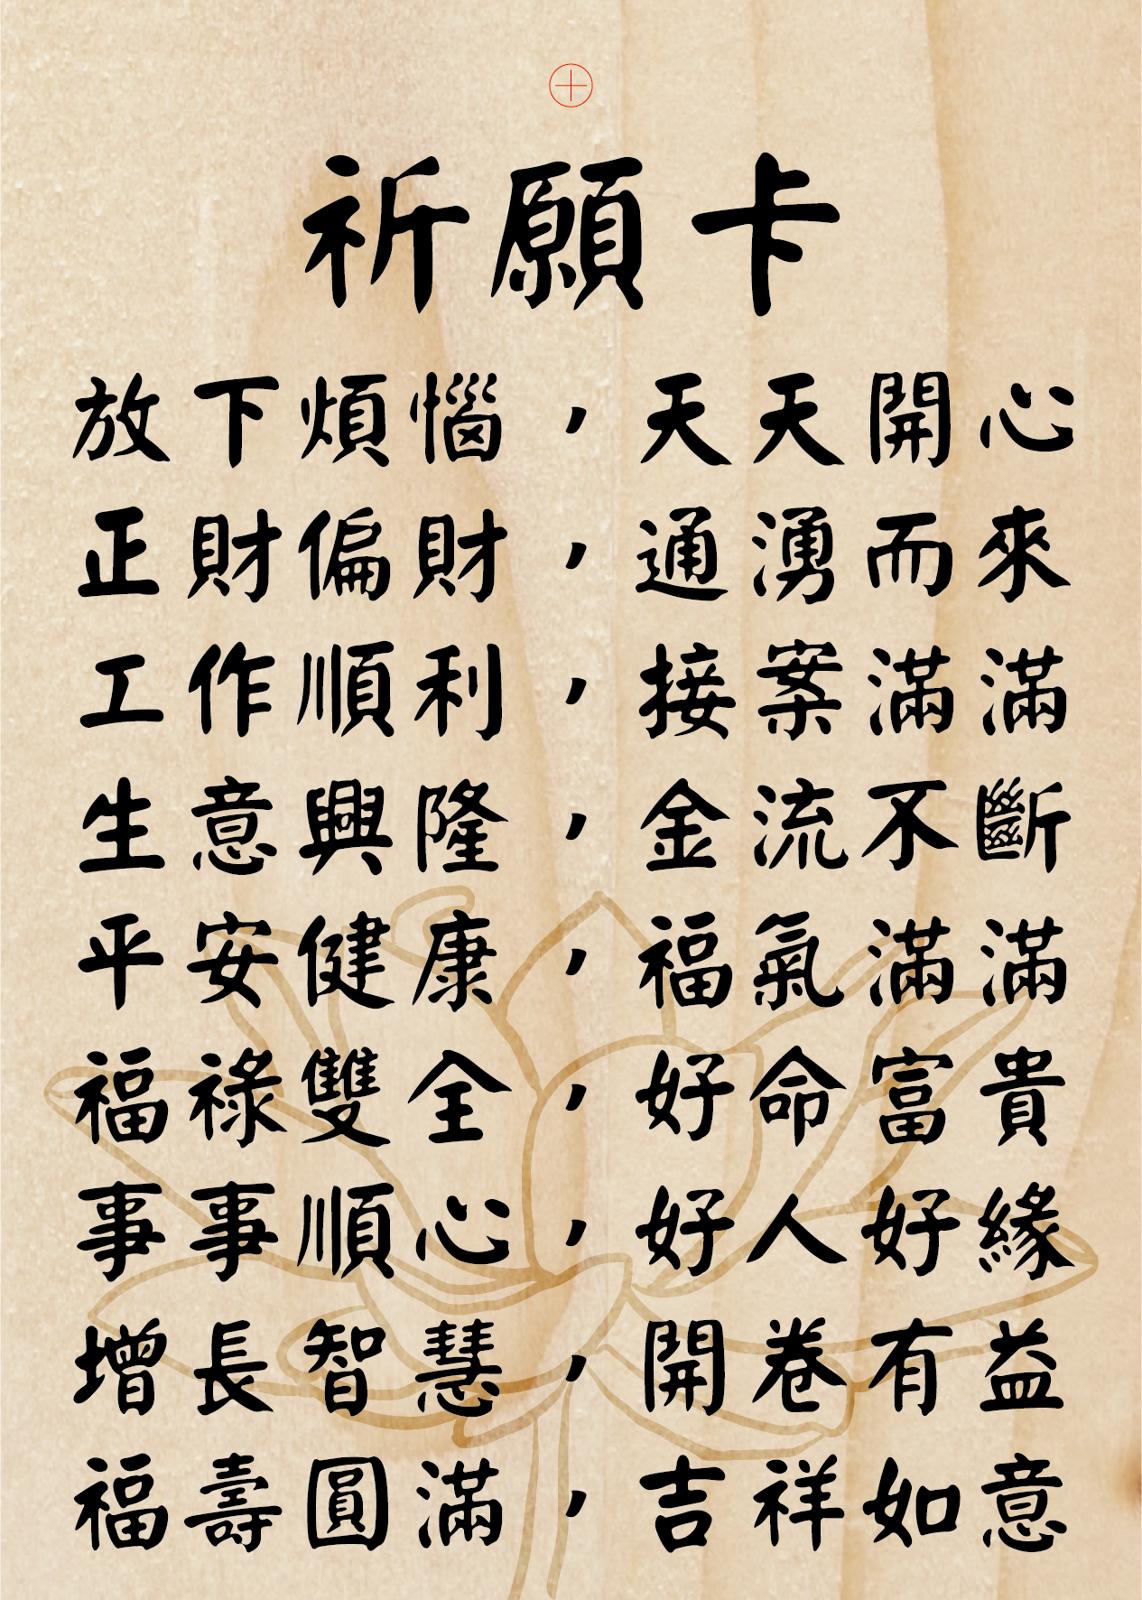 祈願卡
放下煩惱，天天開心
正財偏財，通湧而來
工作順利，接案滿滿
生意興隆，金流不斷
平安健康，福氣滿滿
福祿雙全，好命富貴
事事順心，好人好緣
增長智慧，開卷有益
福壽圓滿，吉祥如意